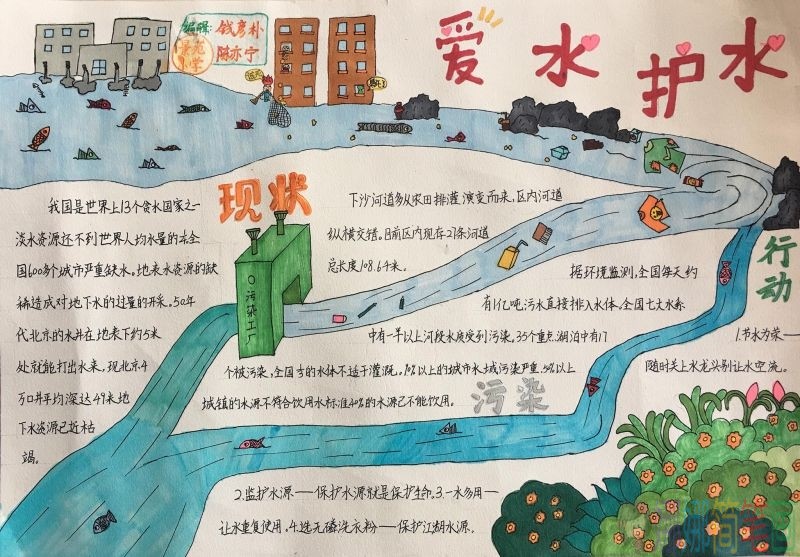 爱水护水
编辑:钱彦朴
陈亦宁
景苑小学
现状
污染工厂
我国是世界上13个贫水国家之一
淡水资源还不到世界人均水量的
全
国600多个城市严重缺水。地表水资源的缺
稀造成对地下水的过量的开采。50年
代北京的水井在地表下约5米
处就能打出水来,现北京4
万口井平均深达49米地
下水资源已近枯
竭。
下沙河道多从农田排灌演变而来,区内河道
纵横交错。目前区内现存27条河道
总长度108.64米。
据环境监测,全国每天约
有1亿吨污水直接排入水体。全国七大水系
中有一半以上河段水质受到污染。35个重点湖泊中有17
个被污染,全国
的水体不适于灌溉。
以上的城市水域污染严重.
以上
城镇的水源不符合饮用水标准40%的水源已不能饮用。
污染
行动
1.节水为荣——
随时关上水龙头别让水空流。
2.监护水源——保护水源就是保护生命.3.一水多用—
让水重复使用。4.选无磷洗衣粉——保护江湖水源。